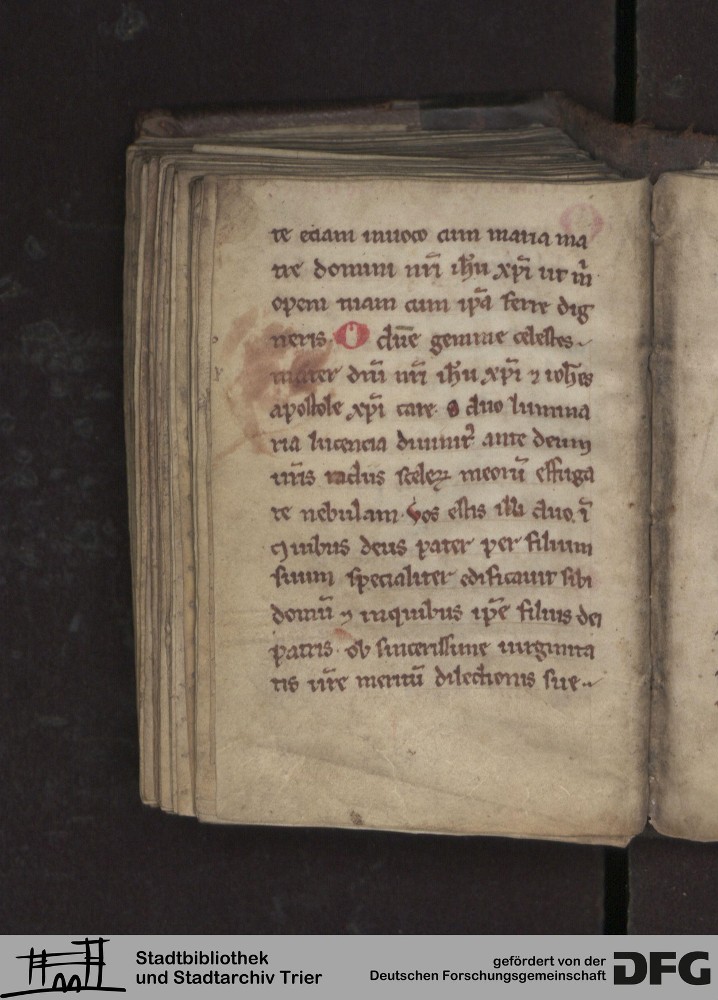 te eciam inuoco cum maria ma
tre domini nr̄i ih̄u xp̄i ut m̄
opem tuam cum ip̄a ferre dig
neris. O due gemme celestes.
mater dn̄i nr̄i ih̄u xp̄i ⁊ ioh̄es
apostole xp̄i care. o duo lumina
ria lucencia diuinit᷑ ante deum
ur̄is radiis sceleꝝ meoꝝ effuga
te nebulam. Vos estis illi duo. ī
quibus deus pater per filium
suum specialiter edificauit sibi
domū ⁊ in quibus ip̄e filius dei
patris. ob sincerissime uirginita
tis ur̄e meritū dilectionis sue.
Stadtbibliothek
und Stadtarchiv Trier
gefördert von der
Deutschen Forschungsgemeinschaft
DFG